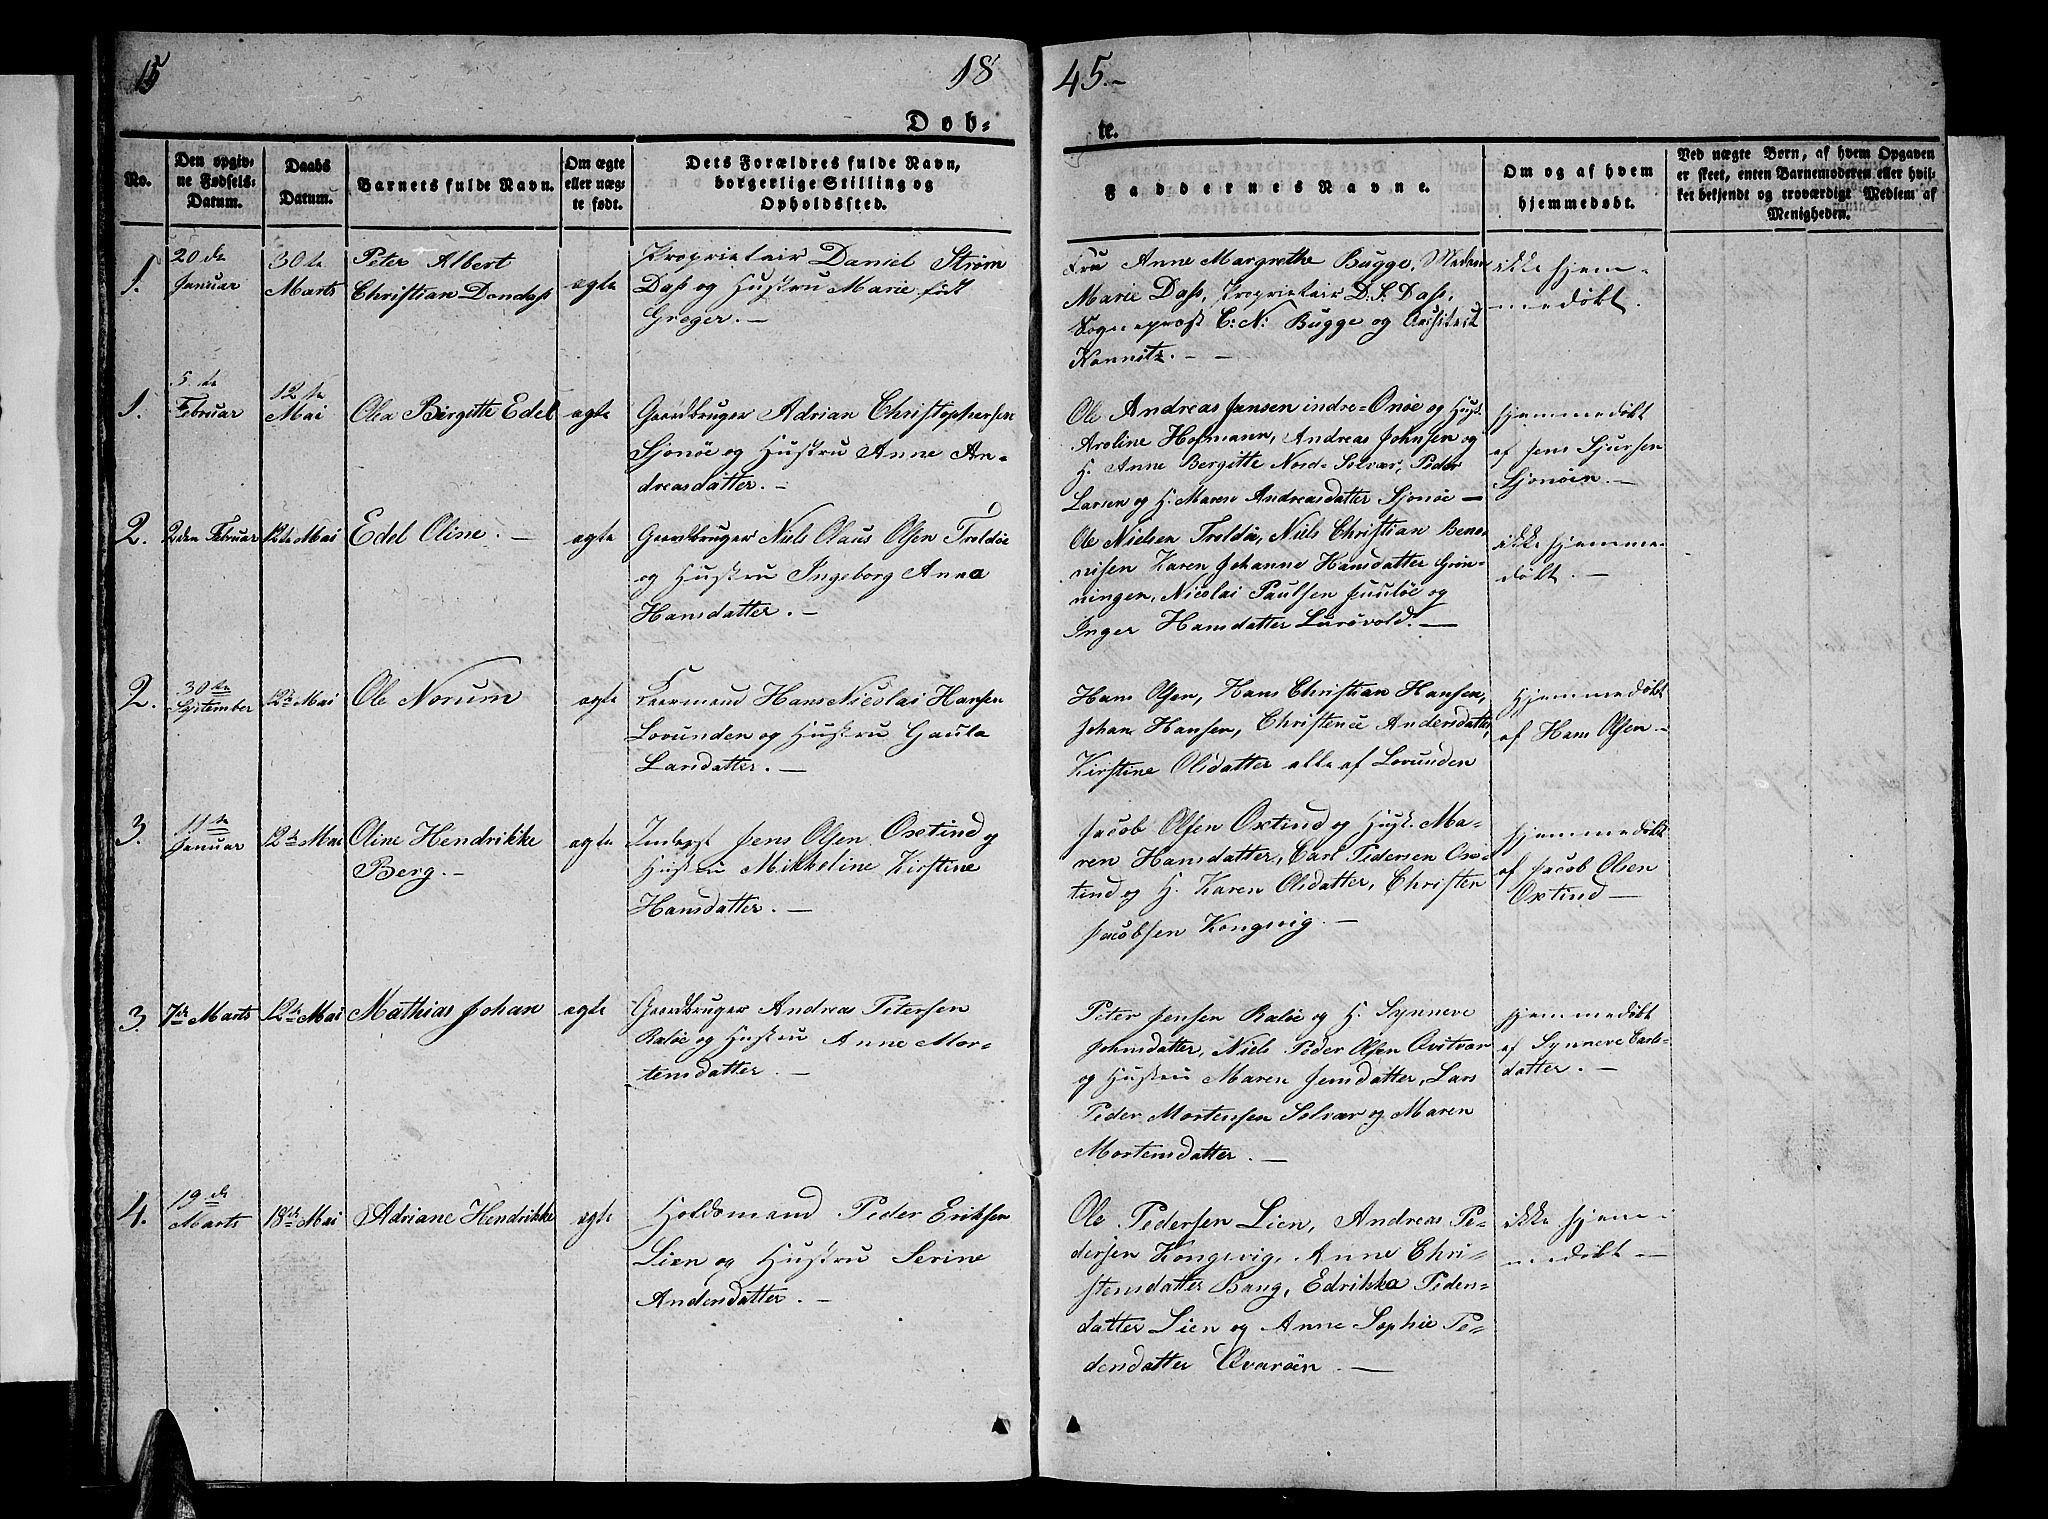 15
1845.-
Dob-
te.
No.
Den opgiv-
ne Fødsels-
Datum.
Daabs
Datum.
Barnets fulde Navn.
Om ægte
eller uæg-
te født.
Dets Forældres fulde Navn,
borgerlige Stilling og
Opholdssted.
Faddernes Navne.
Om og af hvem
hjemmedøbt.
Ved uægte Børn, af hvem Opgaven
er skeet, enten Barnemoderen eller hvil-
ket bekjendt og troværdigt Medlem af
Menigheden.
1.
20de
Januar
30te
Marts
Peter Albert
Christian Dondass
ægte
Proprietair Daniel Strøm
Dass og Hustru Marie født
Greger. -
Fru Anne Margrethe Bugge, Madam
Marie Dass, Proprietair D. S. Dass,
Sogneprest C: N: Bugge og
Kannitz. -
ikke hjem-
medøbt.
1.
5te
Februar
12te
Mai
Olea Birgitte Edel
ægte
Gaardbruger Adrian Christophersen
Sjonøe og Hustru Anne An-
dreasdatter. -
Ole Andreas Jansen indre-Onøe og Hust.
Aroline Hofmann, Andreas Johnsen og
H. Anne Bergitte Nord-Solvær, Peder
Larsen og H. Maren Andreasdatter Sjonøe -
hjemmedøbt
af Jens Sjursen
Sjonøen. -
2.
2den Februar
12te Mai
Edel Oline. -
ægte
Gaardbruger Niels Olaus Olsen Troldøe
og Hustru Ingeborg Anna
Hansdatter. -
Ole Nielsen Troldø, Niels Christian Beno-
nisen Karen Johanne Hansdatter Grøn-
ningen, Nicolai Paulsen Juuløe og
Inger Hansdatter Lurøvold. -
ikke hjemme-
døbt. -
2.
30te
September
12te Mai
Ole Norum
ægte
Kaarmand Hans Nicolai Hansen
Lovunden og Hustru Gaula
Larsdatter. -
Hans Olsen, Hans Christian Hansen,
Johan Hansen, Christence Andersdatter,
Kirstine Olsdatter alle af Lovunden
hjemmedøbt
af Hans Olsen. -
3.
11te
Januar
12te Mai
Oline Hendrikke
Berg. -
ægte
Inderst Jens Olsen Oxtind og
Hustru Mikkeline Kirstine
Hansdatter. -
Jacob Olsen Oxtind og Hust. Ma-
ren Hansdatter, Carl Pedersen Ox-
tind og H. Karen Olsdatter, Christen
Jacobsen Kongsvig. -
hjemmedøbt
af Jacob Olsen
Oxtind -
3.
7de Marts
12te Mai
Mathias Johan
ægte
Gaardbruger Andreas Petersen
Raløe og Hustru Anne Mor-
tensdatter. -
Peter Jensen Raløe og H. Synneve
Johnsdatter, Niels Peder Olsen Qvitvær
og Hustru Maren Jensdatter, Lars
Peder Mortensen Solvær og Maren
Mortensdatter. -
hjemmedøbt
af Synneve Carls-
datter. -
4.
19de
Marts
18de Mai
Adriane Hendrikke
ægte
Holdsmand Peder Eriksen
Lien og Hustru Serine
Andersdatter. -
Ole Pedersen Lien, Andreas Pe-
dersen Kongsvig, Anne Chri-
stensdatter Bang, Edrikka Peders-
datter Lien og Anne Sophie Pe-
dersdatter Qvarøen -
ikke hjem-
medøbt -